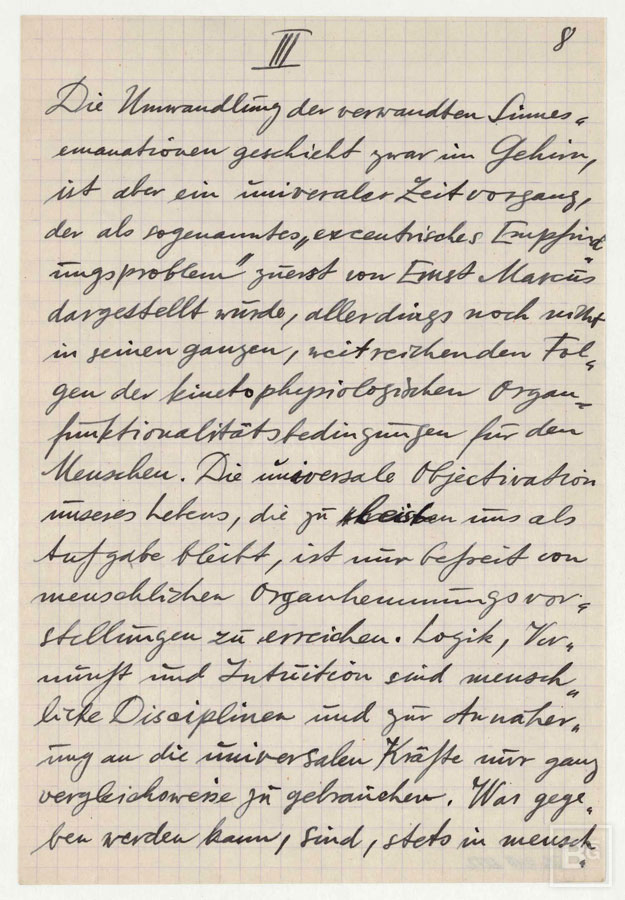 III
8
Die Umwandlung der verwandten Sinnes=
emanationen geschieht zwar im Gehirn,
ist aber ein univeraler Zeitvorgang,
der als sogenanntes „excentrisches Empfind=
ungsproblem" zuerst von Ernst Marcus
dargestellt wurde, allerdings noch nicht
in seinen ganzen, weitreichenden Fol=
gen der kinetophysiologischen Organ=
funktionalitätsbedingungen für den
Menschen. Die universale Objectivation
unseres Lebens, die zu leisten uns als
Aufgabe bleibt, ist nur befreit von
menschlichen Organhemmungsvor=
stellungen zu erreichen. Logik, Ver=
nunft und Intuition sind mensch=
liche Disciplinen und zur Annäher=
ung an die universalen Kräfte nur ganz
vergleichsweise zu gebrauchen. Was gege=
ben werden kann, sind, stets in mensch=
BG